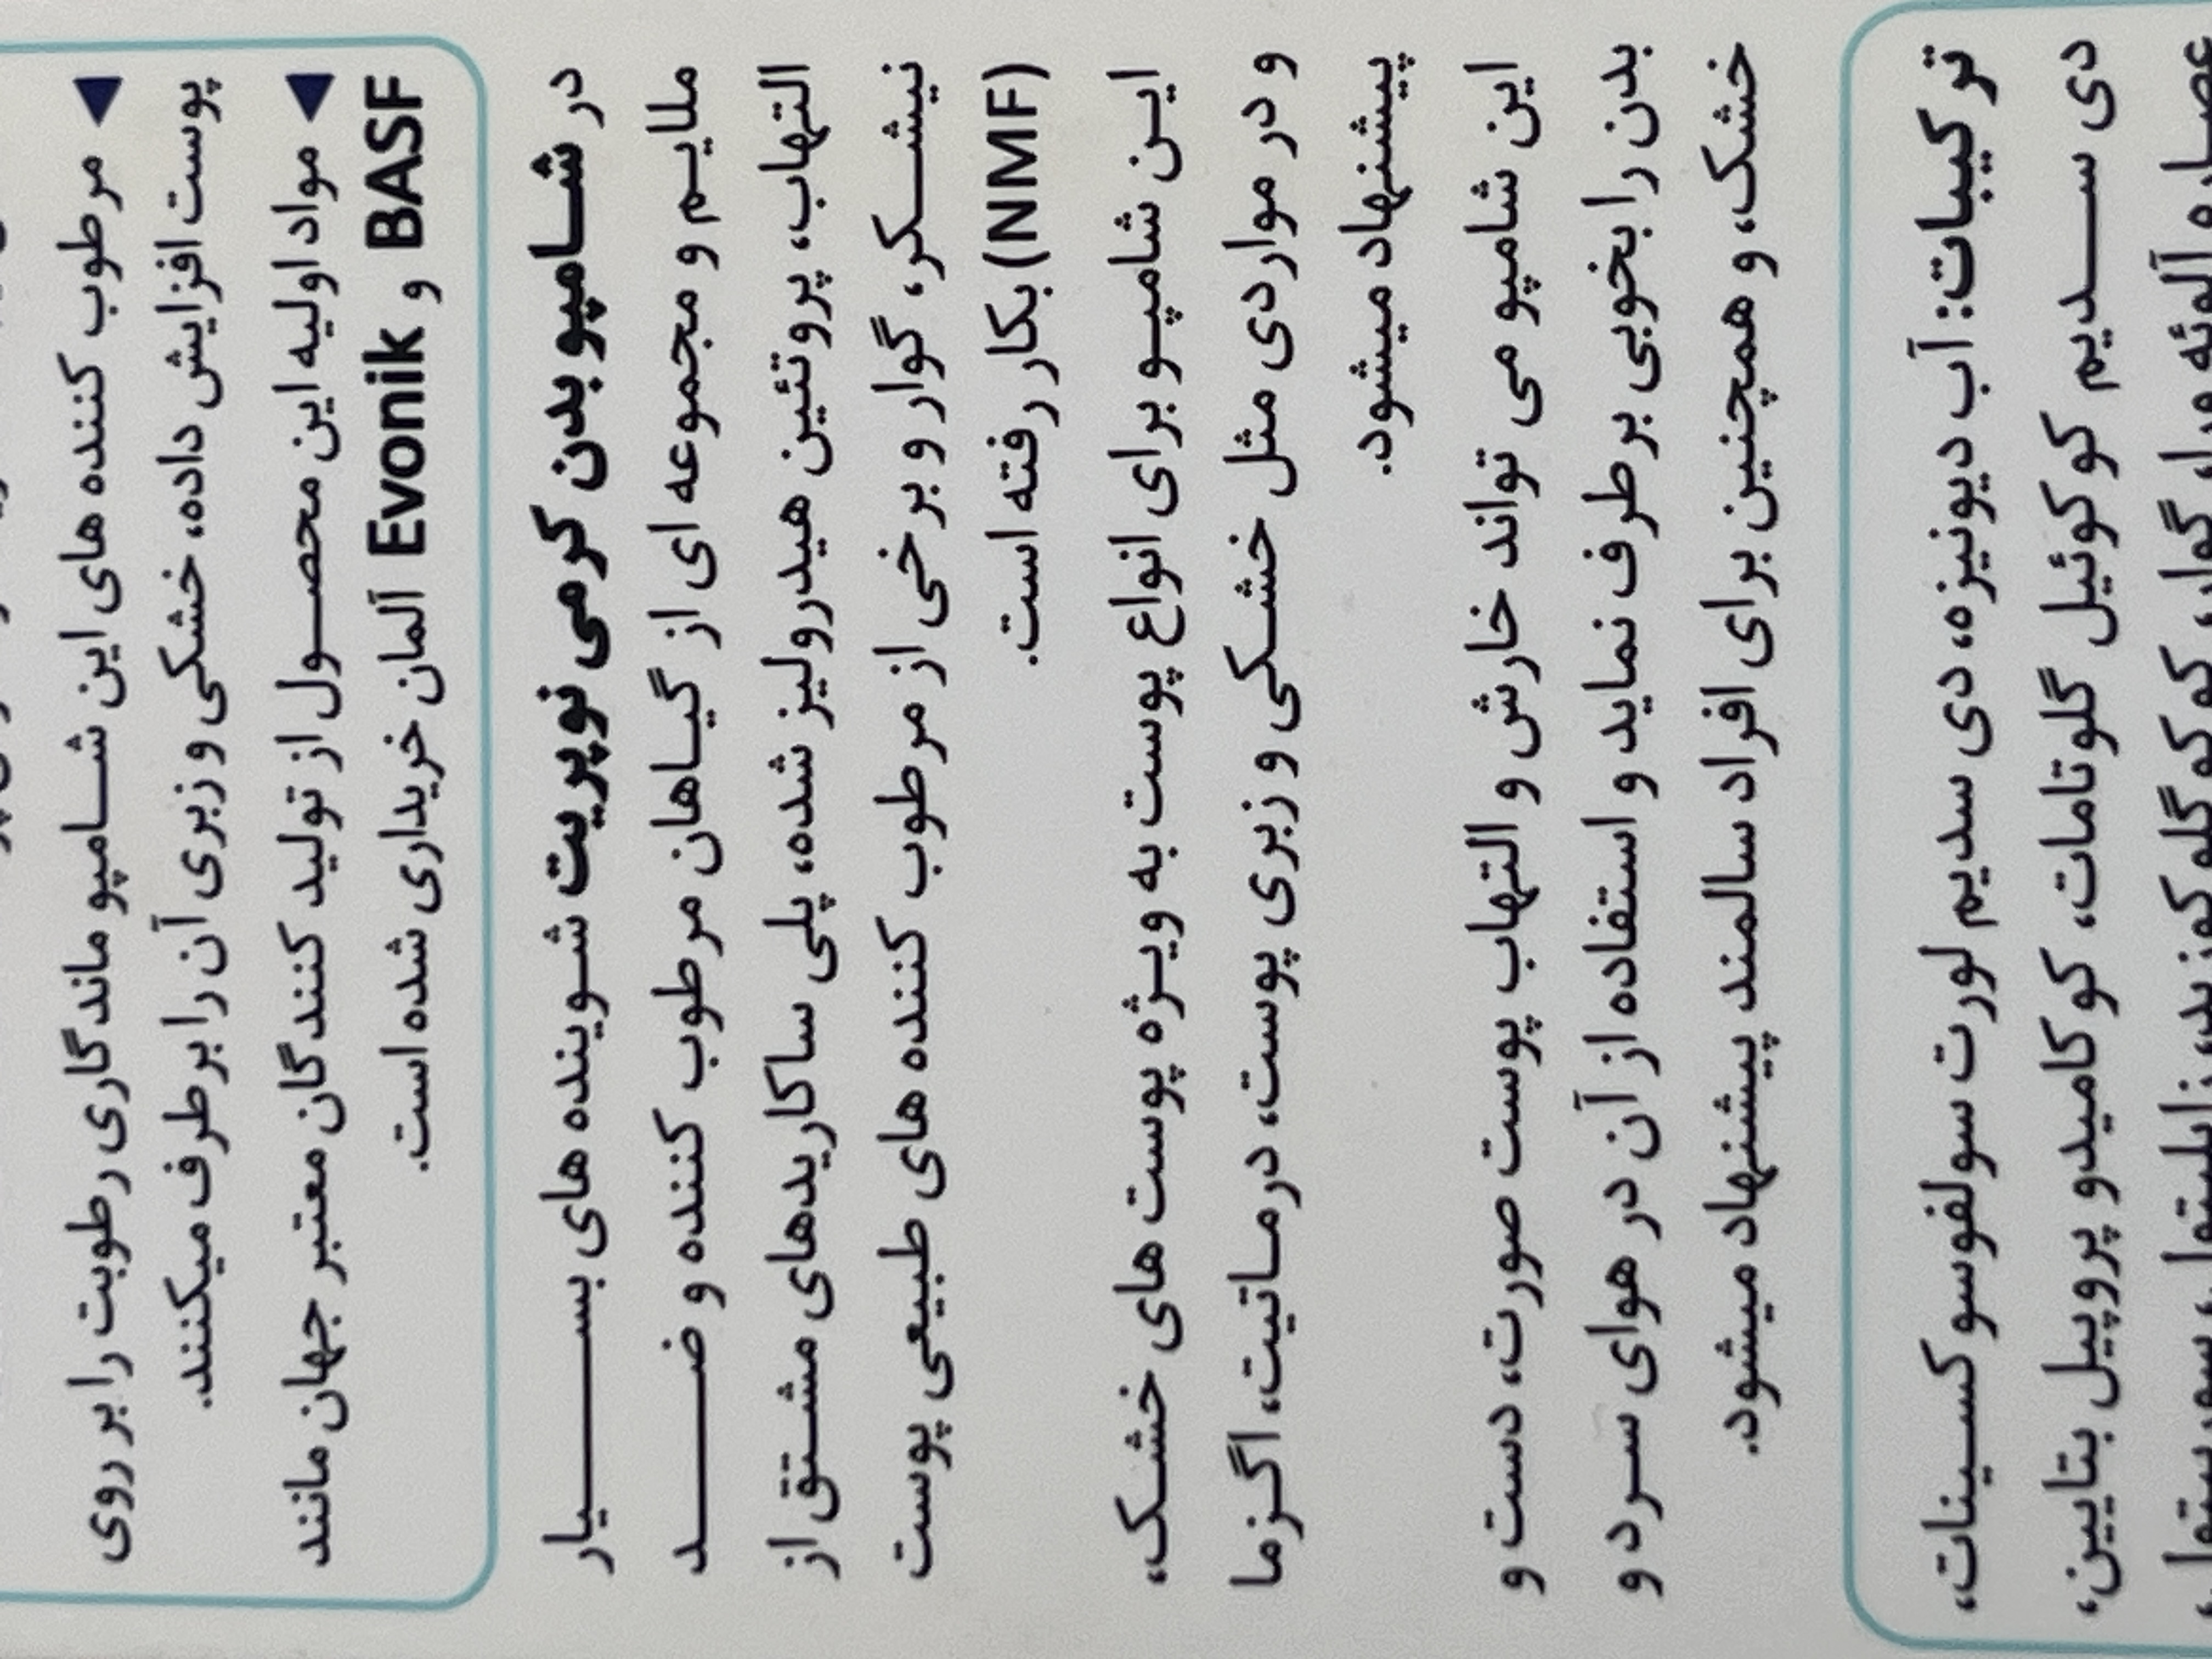 ◀ مرطوب کننده های این شامپو ماندگاری رطوبت را بر روی
پوست افزایش داده، خشکی و زبری آن را برطرف میکنند.
◀ مواد اولیه این محصول از تولید کنندگان معتبر جهان مانند
BASF و Evonik آلمان خریداری شده است.
در شامپو بدن کرمی نوپریت شوینده های بسیار
ملایم و مجموعه ای از گیاهان مرطوب کننده و ضد
التهاب، پروتئین هیدرولیز شده، پلی ساکاریدهای مشتق از
نیشکر، گوار و برخی از مرطوب کننده های طبیعی پوست
(NMF) بکار رفته است.
این شامپو برای انواع پوست به ویژه پوست های خشک،
و در مواردی مثل خشکی و زبری پوست، درماتیت، اگزما
پیشنهاد میشود.
این شامپو می تواند خارش و التهاب پوست صورت، دست و
بدن را بخوبی برطرف نماید و استفاده از آن در هوای سرد و
خشک، و همچنین برای افراد سالمند پیشنهاد میشود.
ترکیبات: آب دیونیزه، دی سدیم لورت سولفوسوکسینات،
دی سدیم کوکوئیل گلوتامات، کوکامیدو پروپیل بتایین،
عصاره آلوئه ورا، گوار، کوکوگلوکوزید،